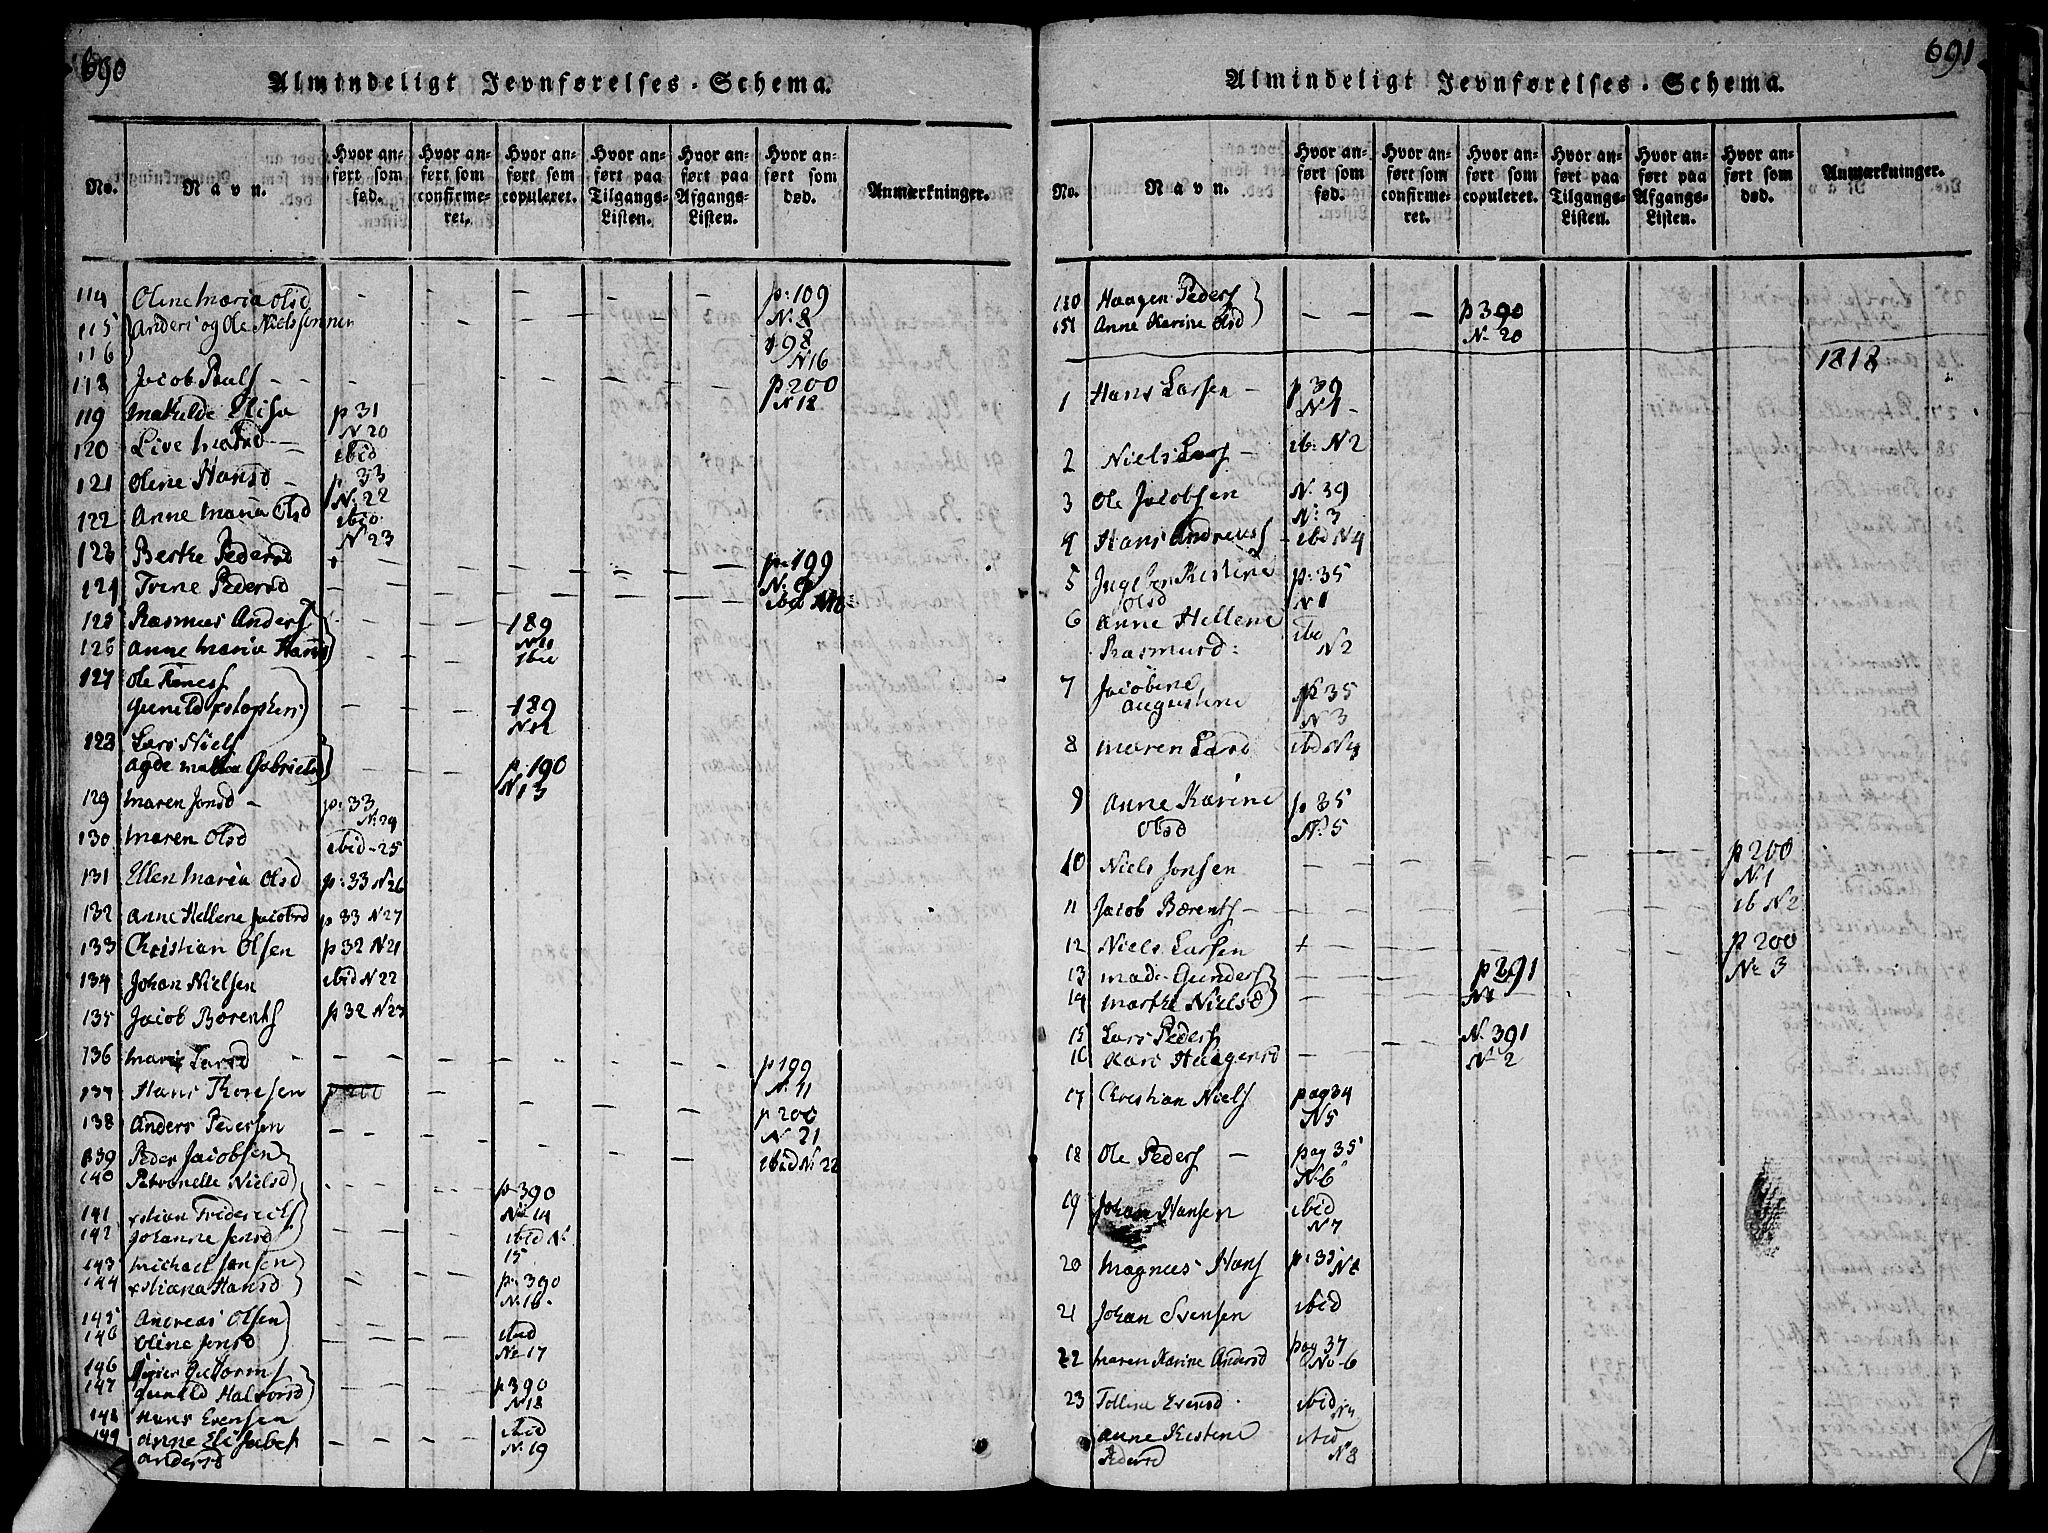 690
Almindeligt Jevnførelses-Schema.
No.
Navn.
Hvor anført som fød.
Hvor anført som confirmeret.
Hvor anført som copuleret.
Hvor anført paa Tilgangs-Listen.
Hvor anført paa Afgangs-Listen.
Hvor anført som død.
Anmærkninger.
114 Olene Maria Olsd p. 109 N. 8
115 Anders og Ole Nielssønner
116 p 98 N 16
118 Jacob Pouls p 200 N 12
119 Mathilde Elisa p 31 N 20
120 Live Matsd ibid
121 Olene Hansd p. 33 N. 22
122 Anne Maria Olsd ibid. N 23
123 Berthe Pedersd p. 199 N. 9
124 Trine Pedersd ibid N 10
125 Rasmus Anders 189 N 11
126 Anne Maria Hansd ibid
127 Ole
Gunild xstophers 189 N 12
128 Lars Niels
Agde Gabrielsd p. 190 N 13
129 Maren Jonsd p. 33 N. 24
130 Maren Olsd ibid - 25
131 Ellen Maria Olsd p. 33 N 26
132 Anne Hellene Jacobsd p 33 N 27
133 Christian Olsen p 32 N 21
134 Johan Nielsen ibid N 22
135 Jacob Børents p 32 N 23
136 Maria Larsd p 199 N. 11
137 Hans Thoresen p 200 p 200 N 21
138 Anders Pedersen ibid N 22
139 Peder Jacobsen
140 Petronelle Nielsd p 390 N 14
141 xstian Friderichs
142 Johanne Jensd ibid N 15
143 Michael Jensen
144 xstiana Hansd p. 390 N. 16
145 Andreas Olsen
146 Oline Jonsd ibid No 17
146 Guttorms
147 Gunild Halvorsd p 390 N 18
148 Hans Evensen
149 Anne Elisabet
Andersd ibid N. 19
691
Almindeligt Jevnførelses-Schema.
No.
Navn.
Hvor anført som fød.
Hvor anført som confirmeret.
Hvor anført som copuleret.
Hvor anført paa Tilgangs-Listen.
Hvor anført paa Afgangs-Listen.
Hvor anført som død.
Anmærkninger.
150 Haagen Peders
151 Anne Karine Olsd p 390 N. 20
1818
1 Hans Larsen p 39 N 1
2 Niels Lars ib. N 2
3 Ole Jacobsen N. 39 N. 3
4 Hans Andreas ibd N 4
5 Ingebor Kistine
Olsd p. 35 N 1
6 Anne Hellene
Rasmusd: ibd N 2
7 Jacobine
Augustine N 35 N 3
8 Maren Larsd ibd N 4
9 Anne Karine
Olsd p 35 N. 5
10 Niels Jonsen p 200 N. 1
11 Jacob Børents ib N 2
12 Niels Larsen + p 200 N. 3
13 Mads Gunders p 391
14 Marthe Nielsd N 1
15 Lars Peders N. 391
16 Kari Haagensd N 2
17 Christian Niels pag 34 N 5
18 Ole Peders pag 35 N. 6
19 Johan Hansen ibid N 7
20 Magnus Hans p. 35 N 8
21 Johan Svensen ibid
22 Maren Karine Andersd pag 37 No 6
23 Tolline Evensd ibid N 7
Anne Kestine
Pedersd ibid N 8